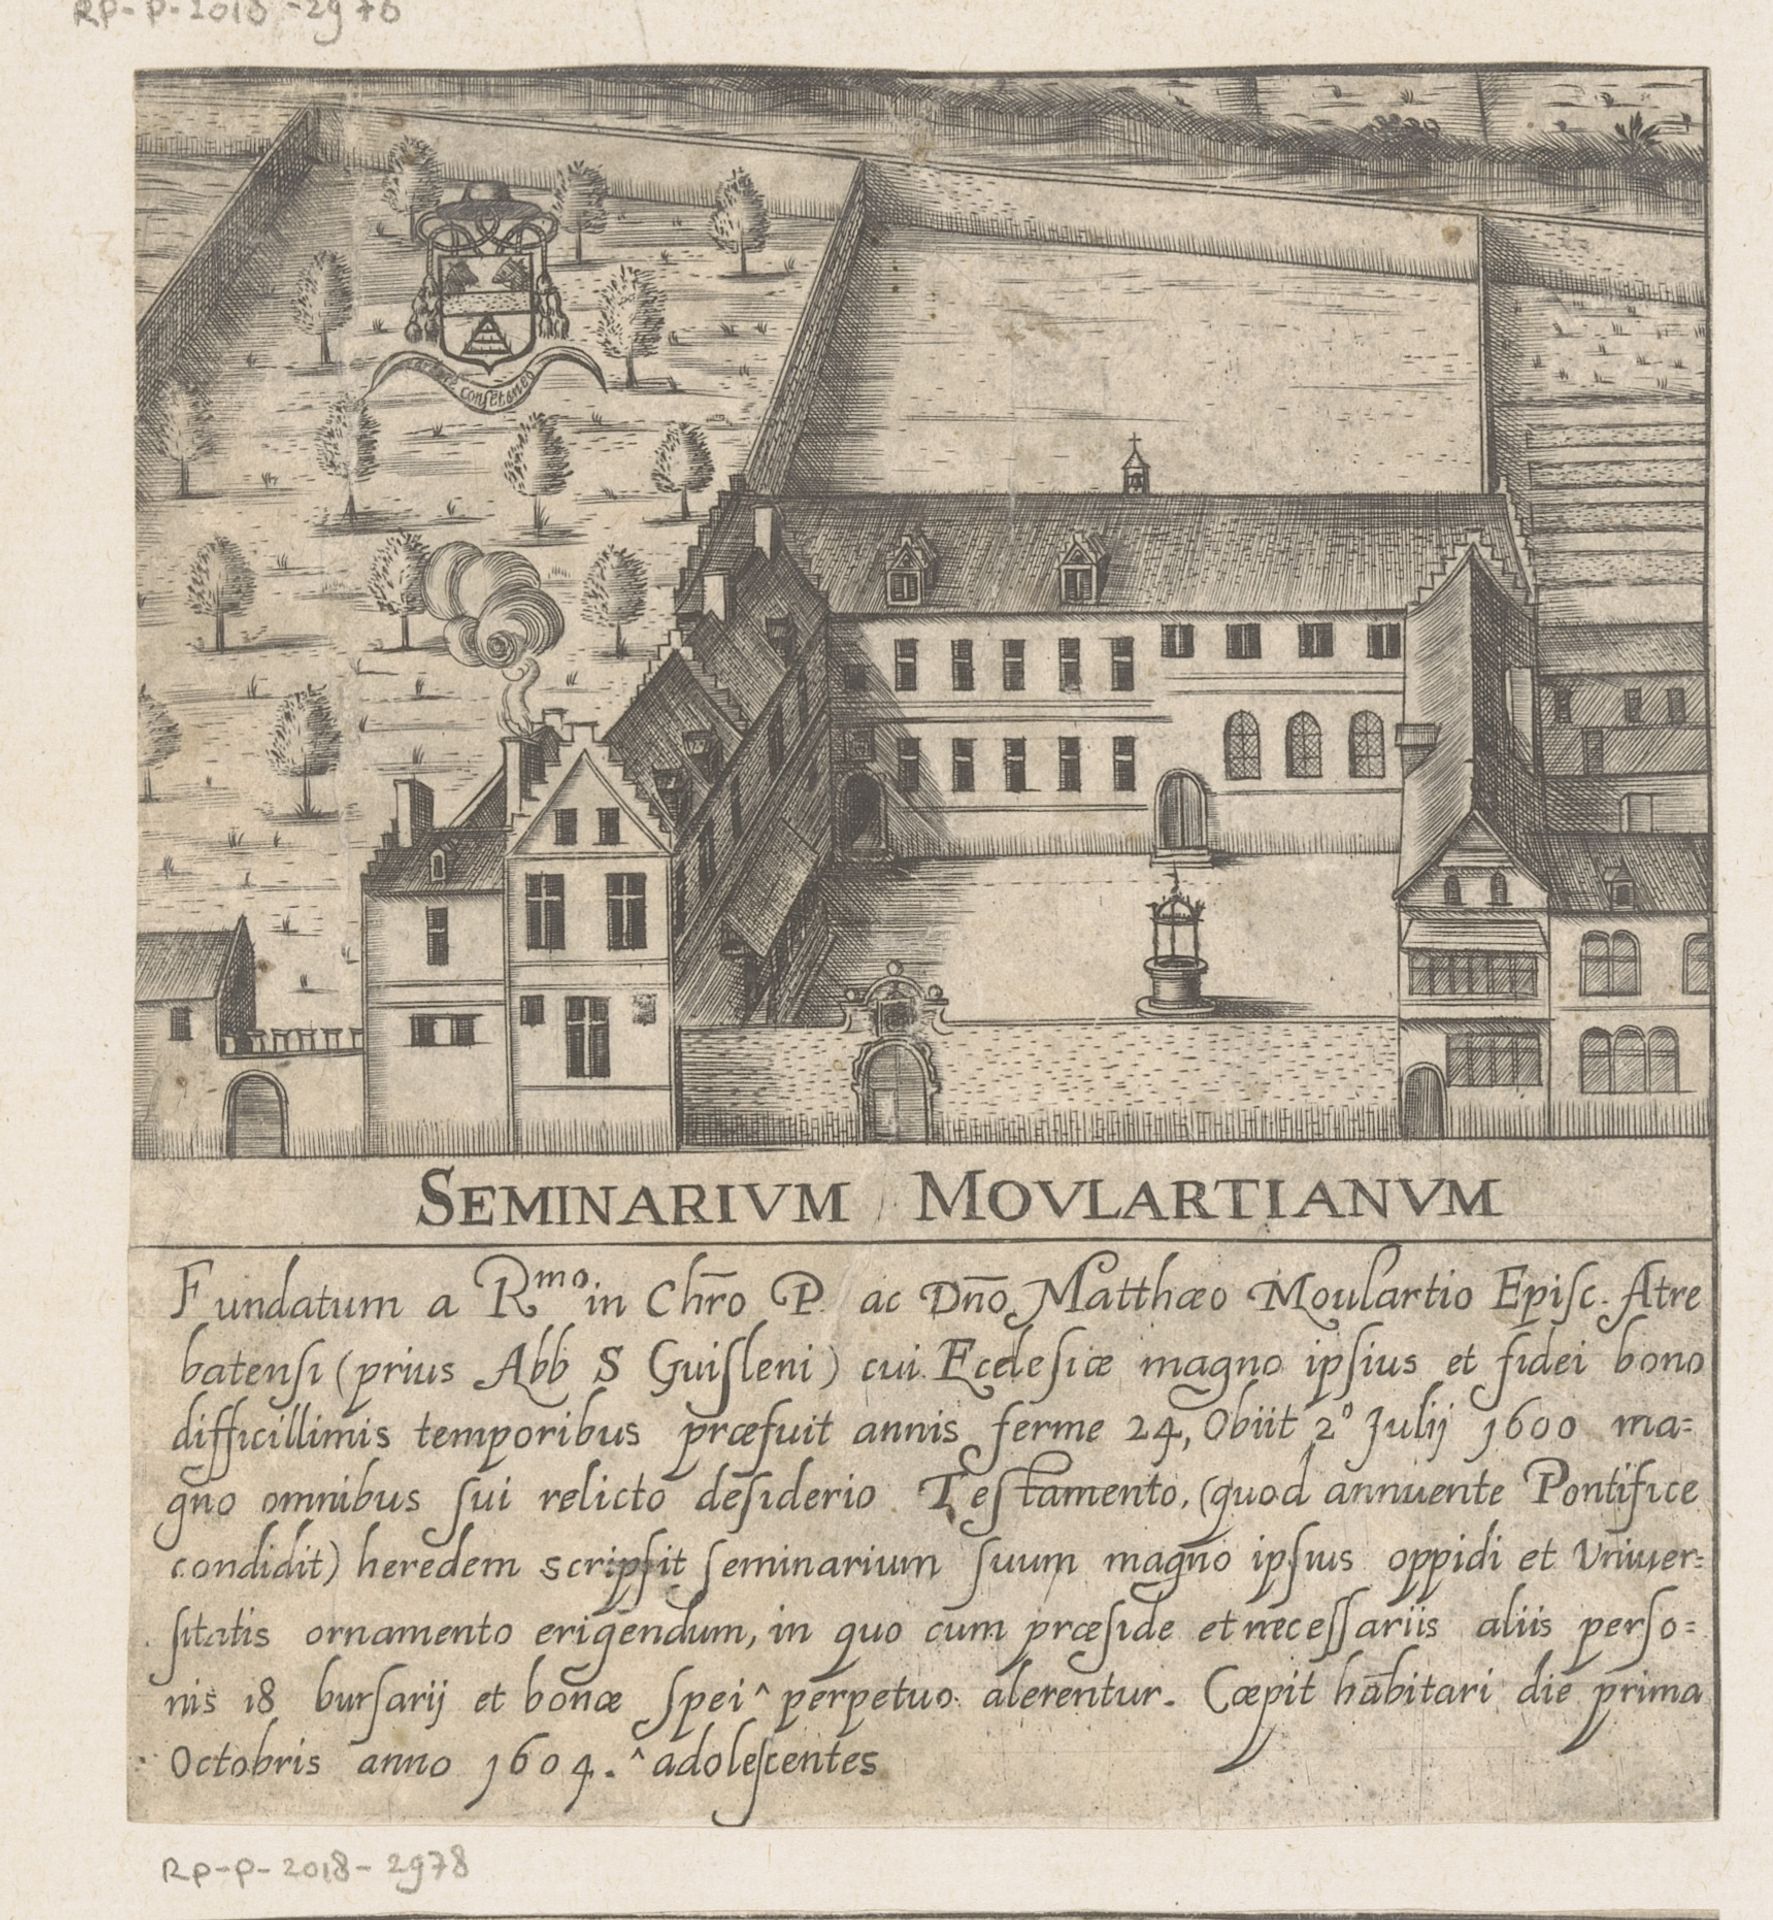 RP-P-2018-2976
consẽtaneo
SEMINARIVM MOVLARTIANVM
Fundatum a Rmo in Chr̄o P. ac Dn̄o Matthæo Moulartio Epiſc. Atre
batenſi (prius Abb S Guiſleni) cui Ecclesiæ magno ipſius et fidei bono
difficillimis temporibus præfuit annis ferme 24, Obiit 2º Julij 1600 ma=
gno omnibus ſui relicto deſiderio Teſtamento, (quod annuente Pontifice
condidit) heredem scripſit ſeminarium ſuum magno ipſius oppidi et Vniuer=
ſitatis ornamento erigendum, in quo cum præſide et neceſſariis aliis perſo=
nis 18 burſarij et bonæ ſpei ^ perpetuo alerentur. Cœpit habitari die prima
Octobris anno 1604. ^ adoleſcentes
RP-P-2018-2978